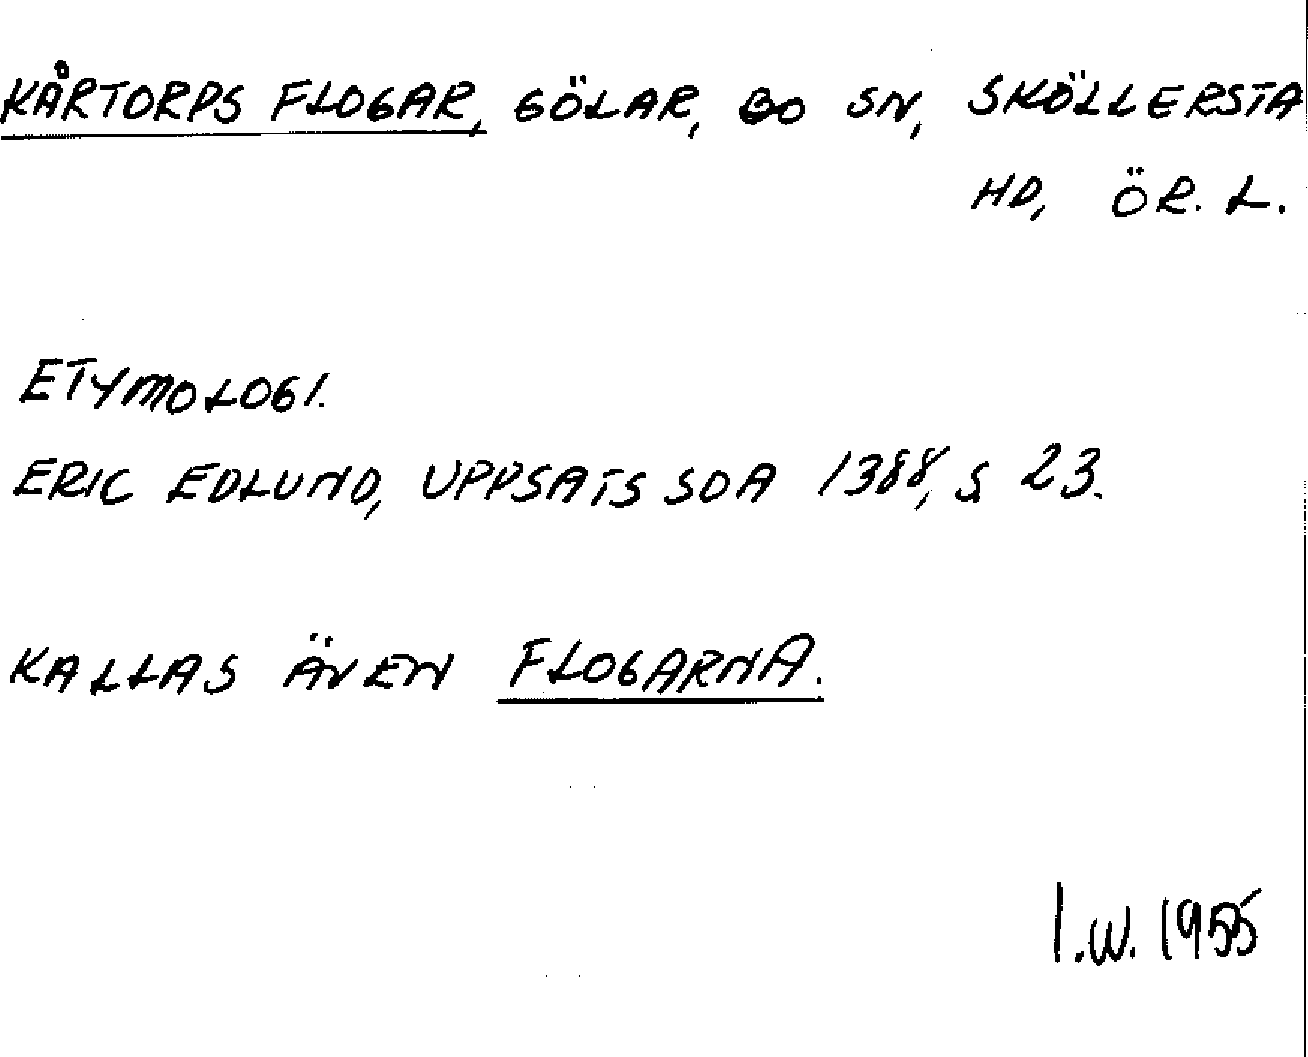 KÅRTORPS FLOGAR, GÖLAR, BO SN, SKÖLLERSTA
HD, ÖR. L.
ETYMOLOGI.
ERIC EDLUND, UPPSATS SOA 1388, S. 23.
KALLAS ÄVEN FLOGARNA.
I.W. 1955